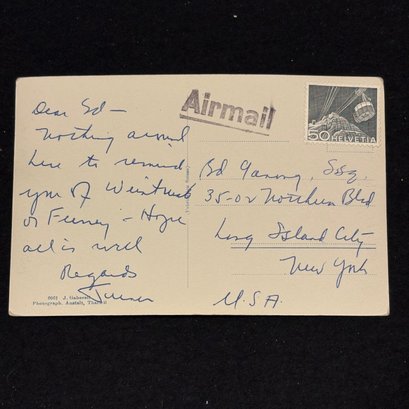 Dear Ed –
Nothing around
here to remind
you of Weintraub
or Feeney – Hope
all is well
Regards
Airmail
50
HELVETIA
Ed Esq.
35-02 Northern Blvd
Long Island City
New York
U.S.A.
J. Gaberell
Photograph. Anstalt, Thalwil